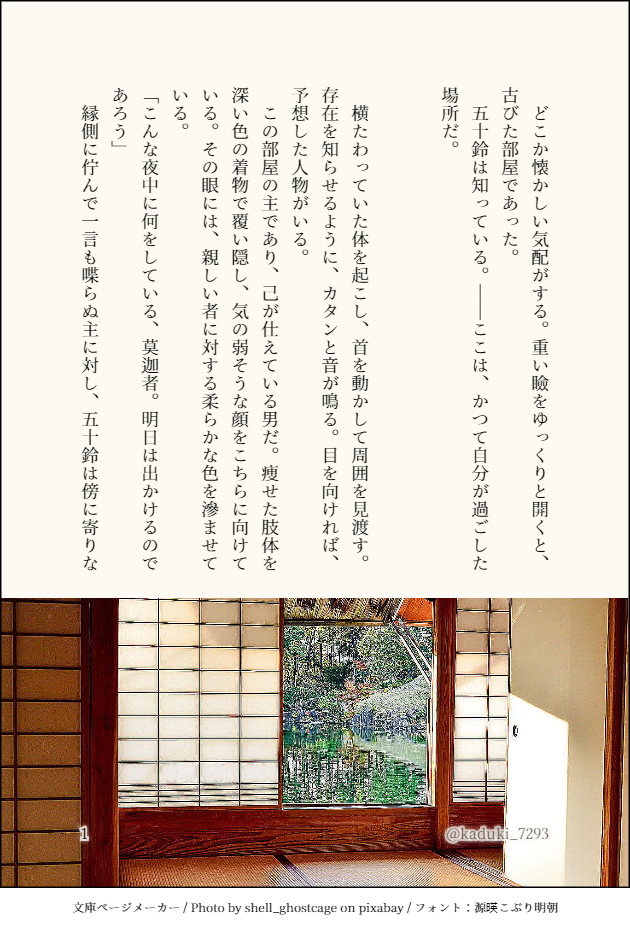 どこか懐かしい気配がする。重い瞼をゆっくりと開くと、
古びた部屋であった。
五十鈴は知っている。――ここは、かつて自分が過ごした
場所だ。
横たわっていた体を起こし、首を動かして周囲を見渡す。
存在を知らせるように、カタンと音が鳴る。目を向ければ、
予想した人物がいる。
この部屋の主であり、己が仕えている男だ。痩せた肢体を
深い色の着物で覆い隠し、気の弱そうな顔をこちらに向けて
いる。その眼には、親しい者に対する柔らかな色を滲ませて
いる。
「こんな夜中に何をしている、莫迦者。明日は出かけるので
あろう」
縁側に佇んで一言も喋らぬ主に対し、五十鈴は傍に寄りな
1
@kaduki_7293
文庫ページメーカー / Photo by shell_ghostcage on pixabay / フォント：源暎こぶり明朝